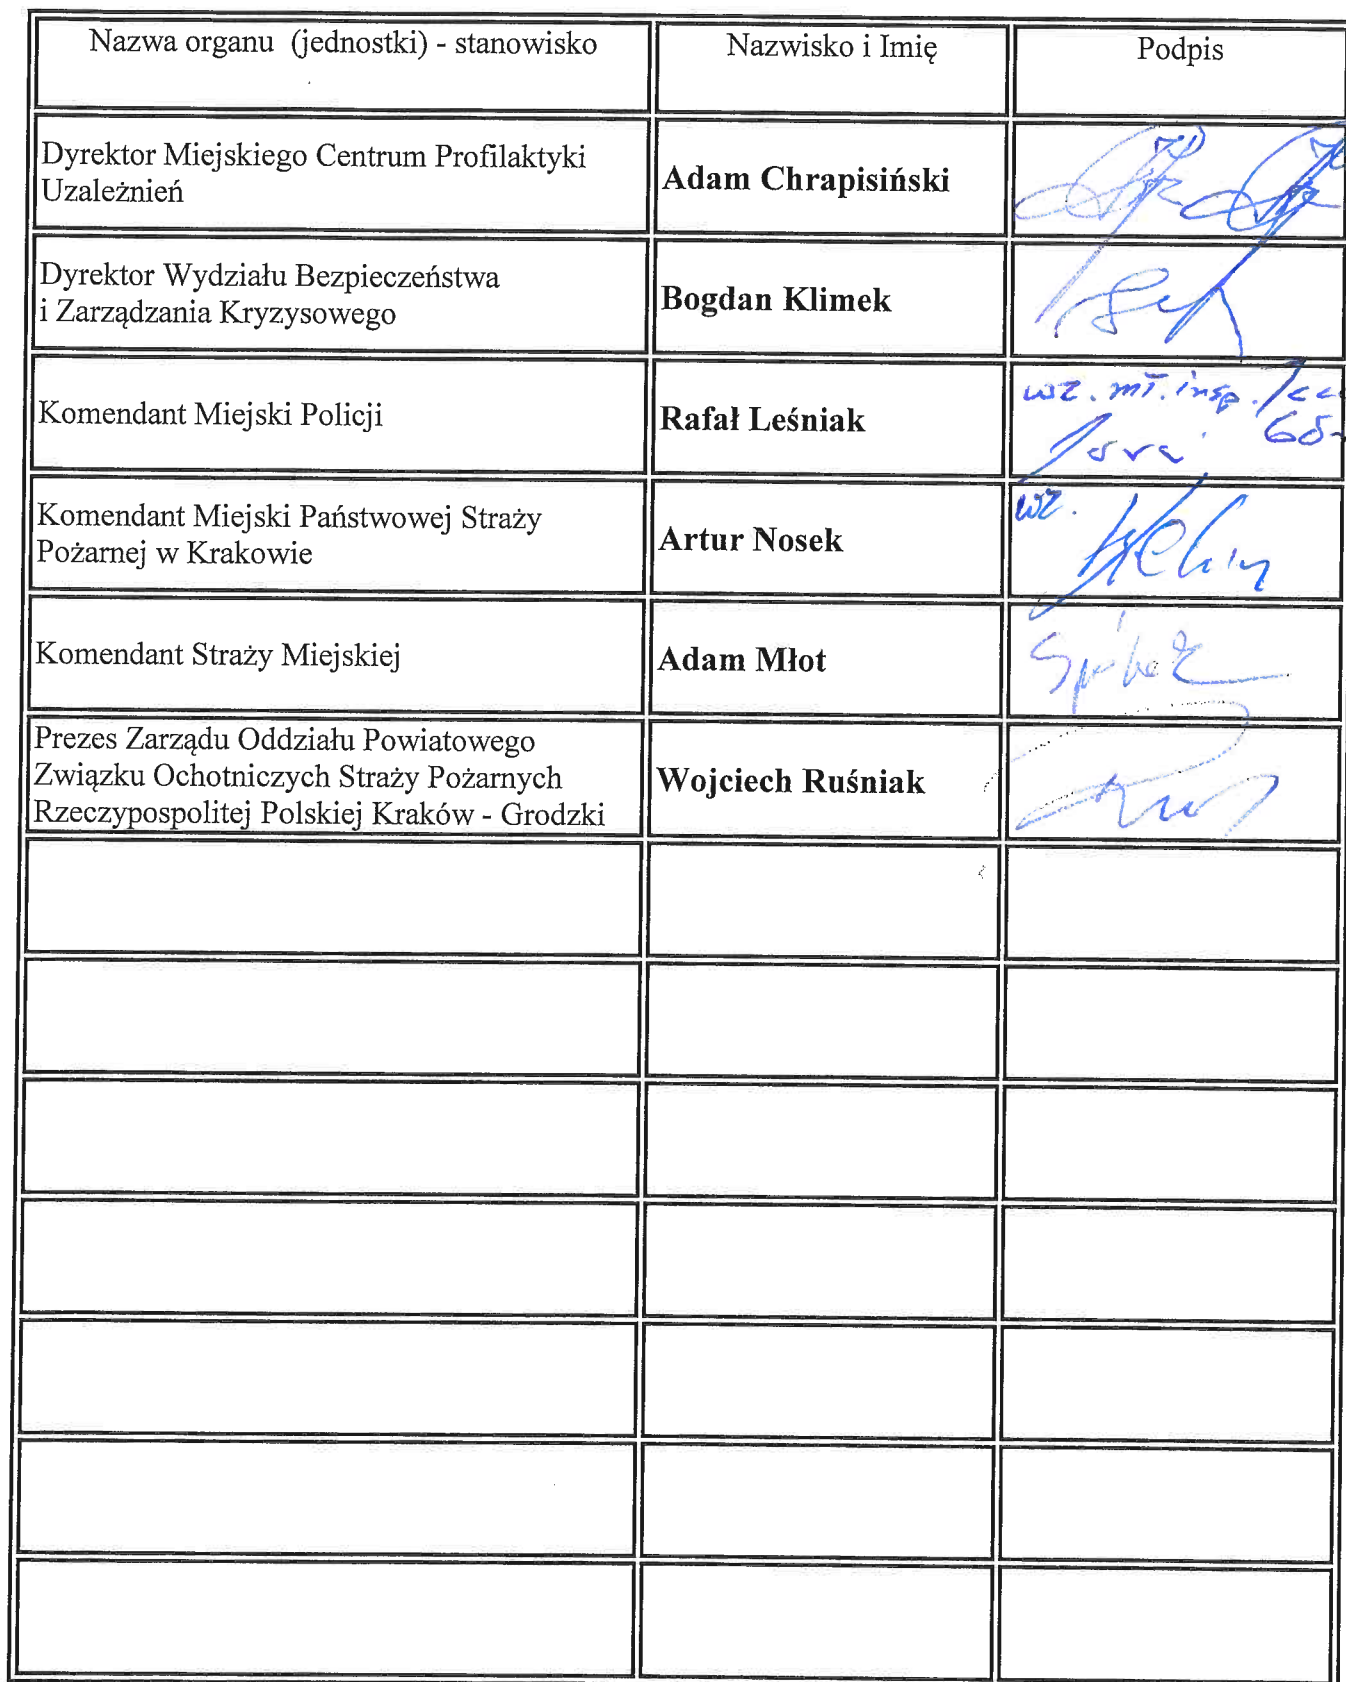 Nazwa organu (jednostki) - stanowisko
Nazwisko i Imię
Podpis
Dyrektor Miejskiego Centrum Profilaktyki
Uzależnień
Adam Chrapisiński
Dyrektor Wydziału Bezpieczeństwa
i Zarządzania Kryzysowego
Bogdan Klimek
Komendant Miejski Policji
Rafał Leśniak
wz. mł. insp.
Komendant Miejski Państwowej Straży
Pożarnej w Krakowie
Artur Nosek
wz.
Komendant Straży Miejskiej
Adam Młot
Prezes Zarządu Oddziału Powiatowego
Związku Ochotniczych Straży Pożarnych
Rzeczypospolitej Polskiej Kraków - Grodzki
Wojciech Ruśniak